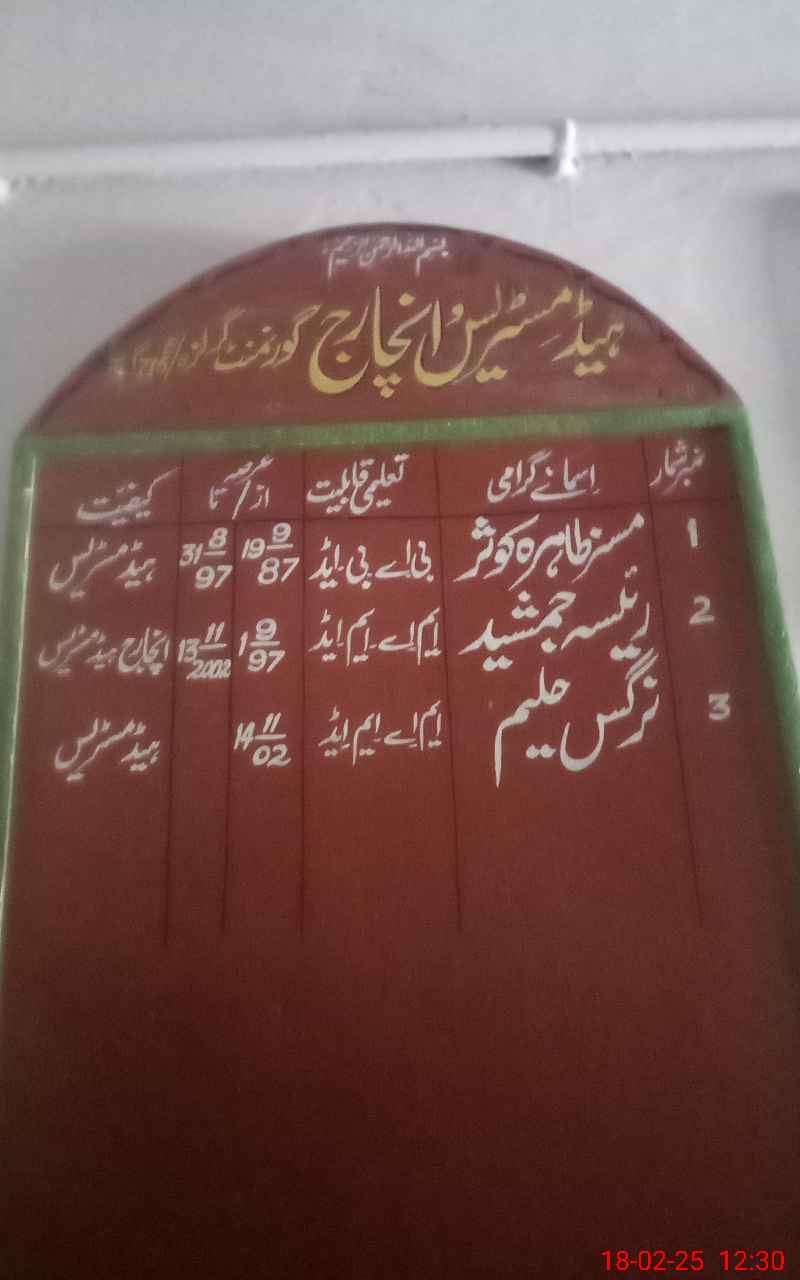 بسم اللہ الرحمن الرحیم
ہیڈ مسٹریس و انچارج گورنمنٹ گرلز
نمبر شمار اسمائے گرامی تعلیمی قابلیت عرصہ از/تا کیفیت
1 مسز طاہرہ کوثر بی اے بی ایڈ 19 9/87 31 8/97 ہیڈ مسٹریس
2 رئیسہ جمشید ایم اے ایم ایڈ 1 9/97 13 11/2002 انچارج ہیڈ مسٹریس
3 نرگس حلیم ایم اے ایم ایڈ 14 11/02 ہیڈ مسٹریس
18-02-25 12:30